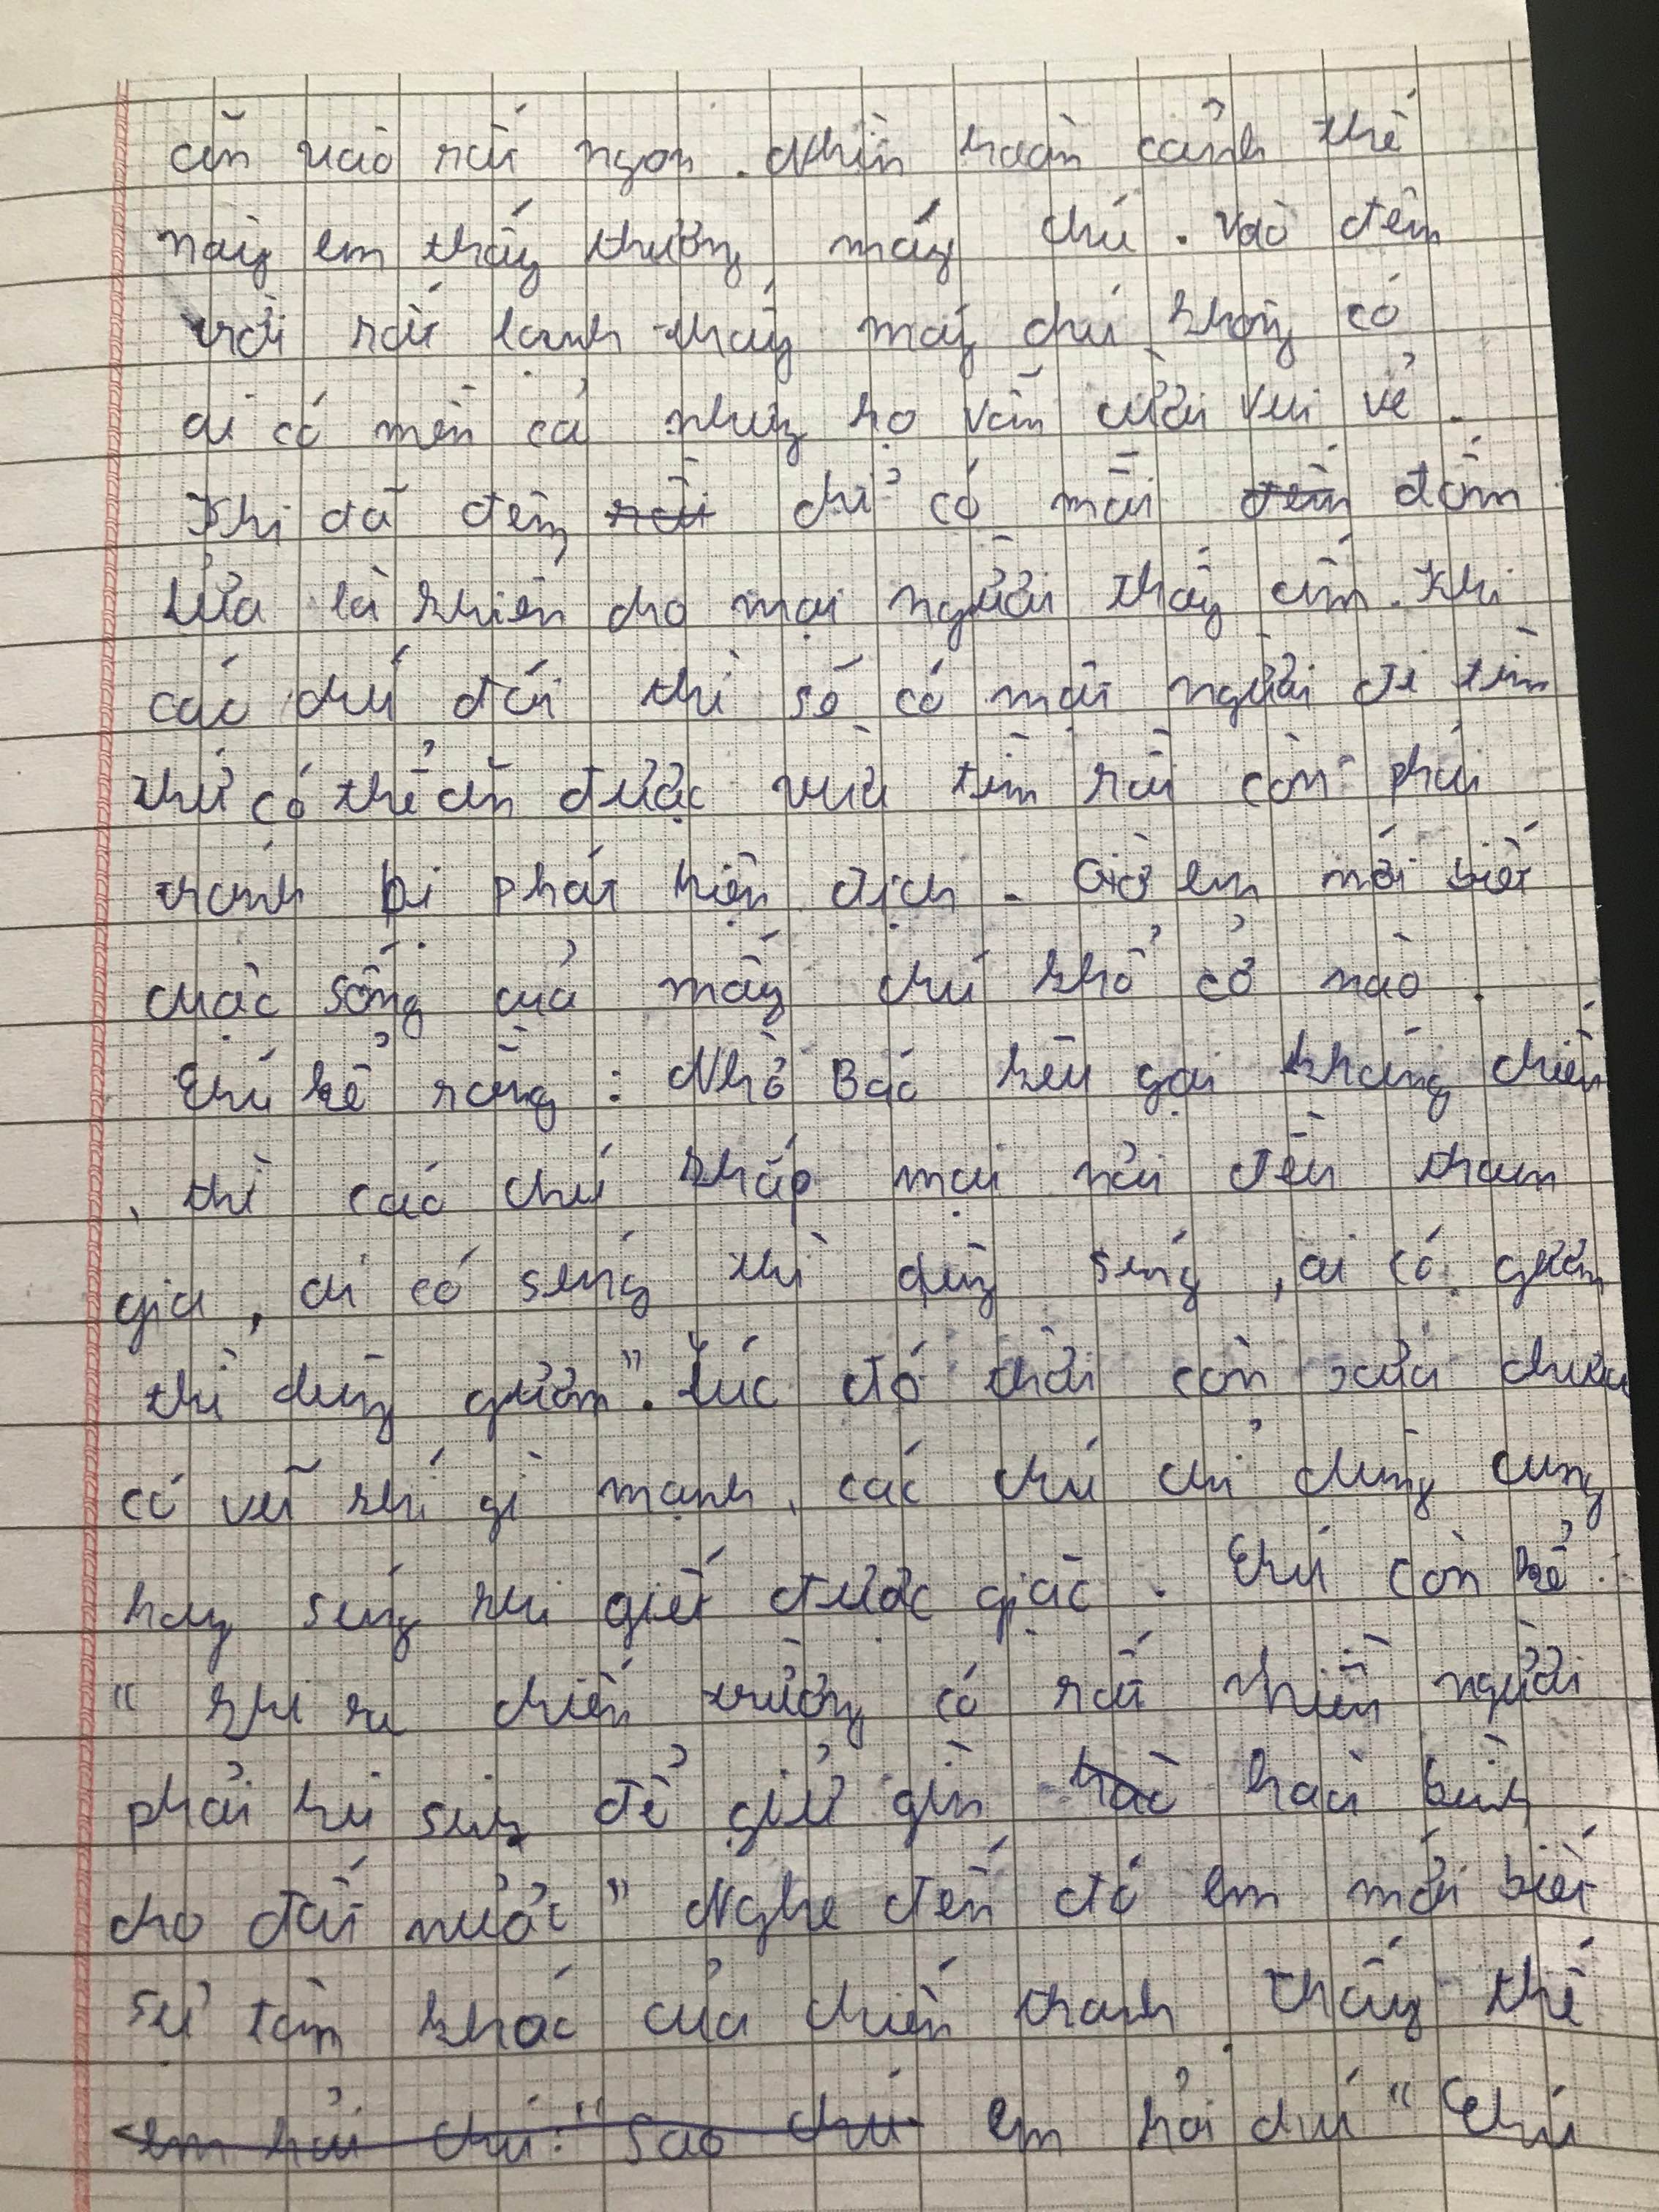 ăn vào rất ngon. Nhìn hoàn cảnh thế
này em thấy thương mấy chú. Vào đêm
trời rất lạnh thấy mấy chú không có
ai có mền cả nhưng họ vẫn cười vui vẻ.
Khi đã đêm rồi chỉ có mỗi đêm đốm
lửa là khiến cho mọi người thấy ấm. Khi
các chú đói thì sẽ có một người đi tìm
thứ có thể ăn được vừa tìm rồi còn phải
tránh bị phát hiện địch. Giờ em mới biết
cuộc sống của mấy chú khổ cở nào.
Chú kể rằng: Nhờ Bác kêu gọi kháng chiến
, thì các chú khắp mọi nơi đến tham
gia, ai có súng thì dùng súng, ai có gươm
thì dùng gươm". Lúc đó thời còn xưa chưa
có vũ khí gì mạnh, các chú chỉ dùng cung
hay súng khi giết được giặc. Chú còn kể:
"khi ra chiến trường có rất nhiều người
phải hi sinh để giữ gìn hoà bình
cho đất nước" Nghe đến đó em mới biết
sự tàn khóc của chiến tranh. Thấy thế
em hỏi chú: "Sao chú em hỏi chú "Chú